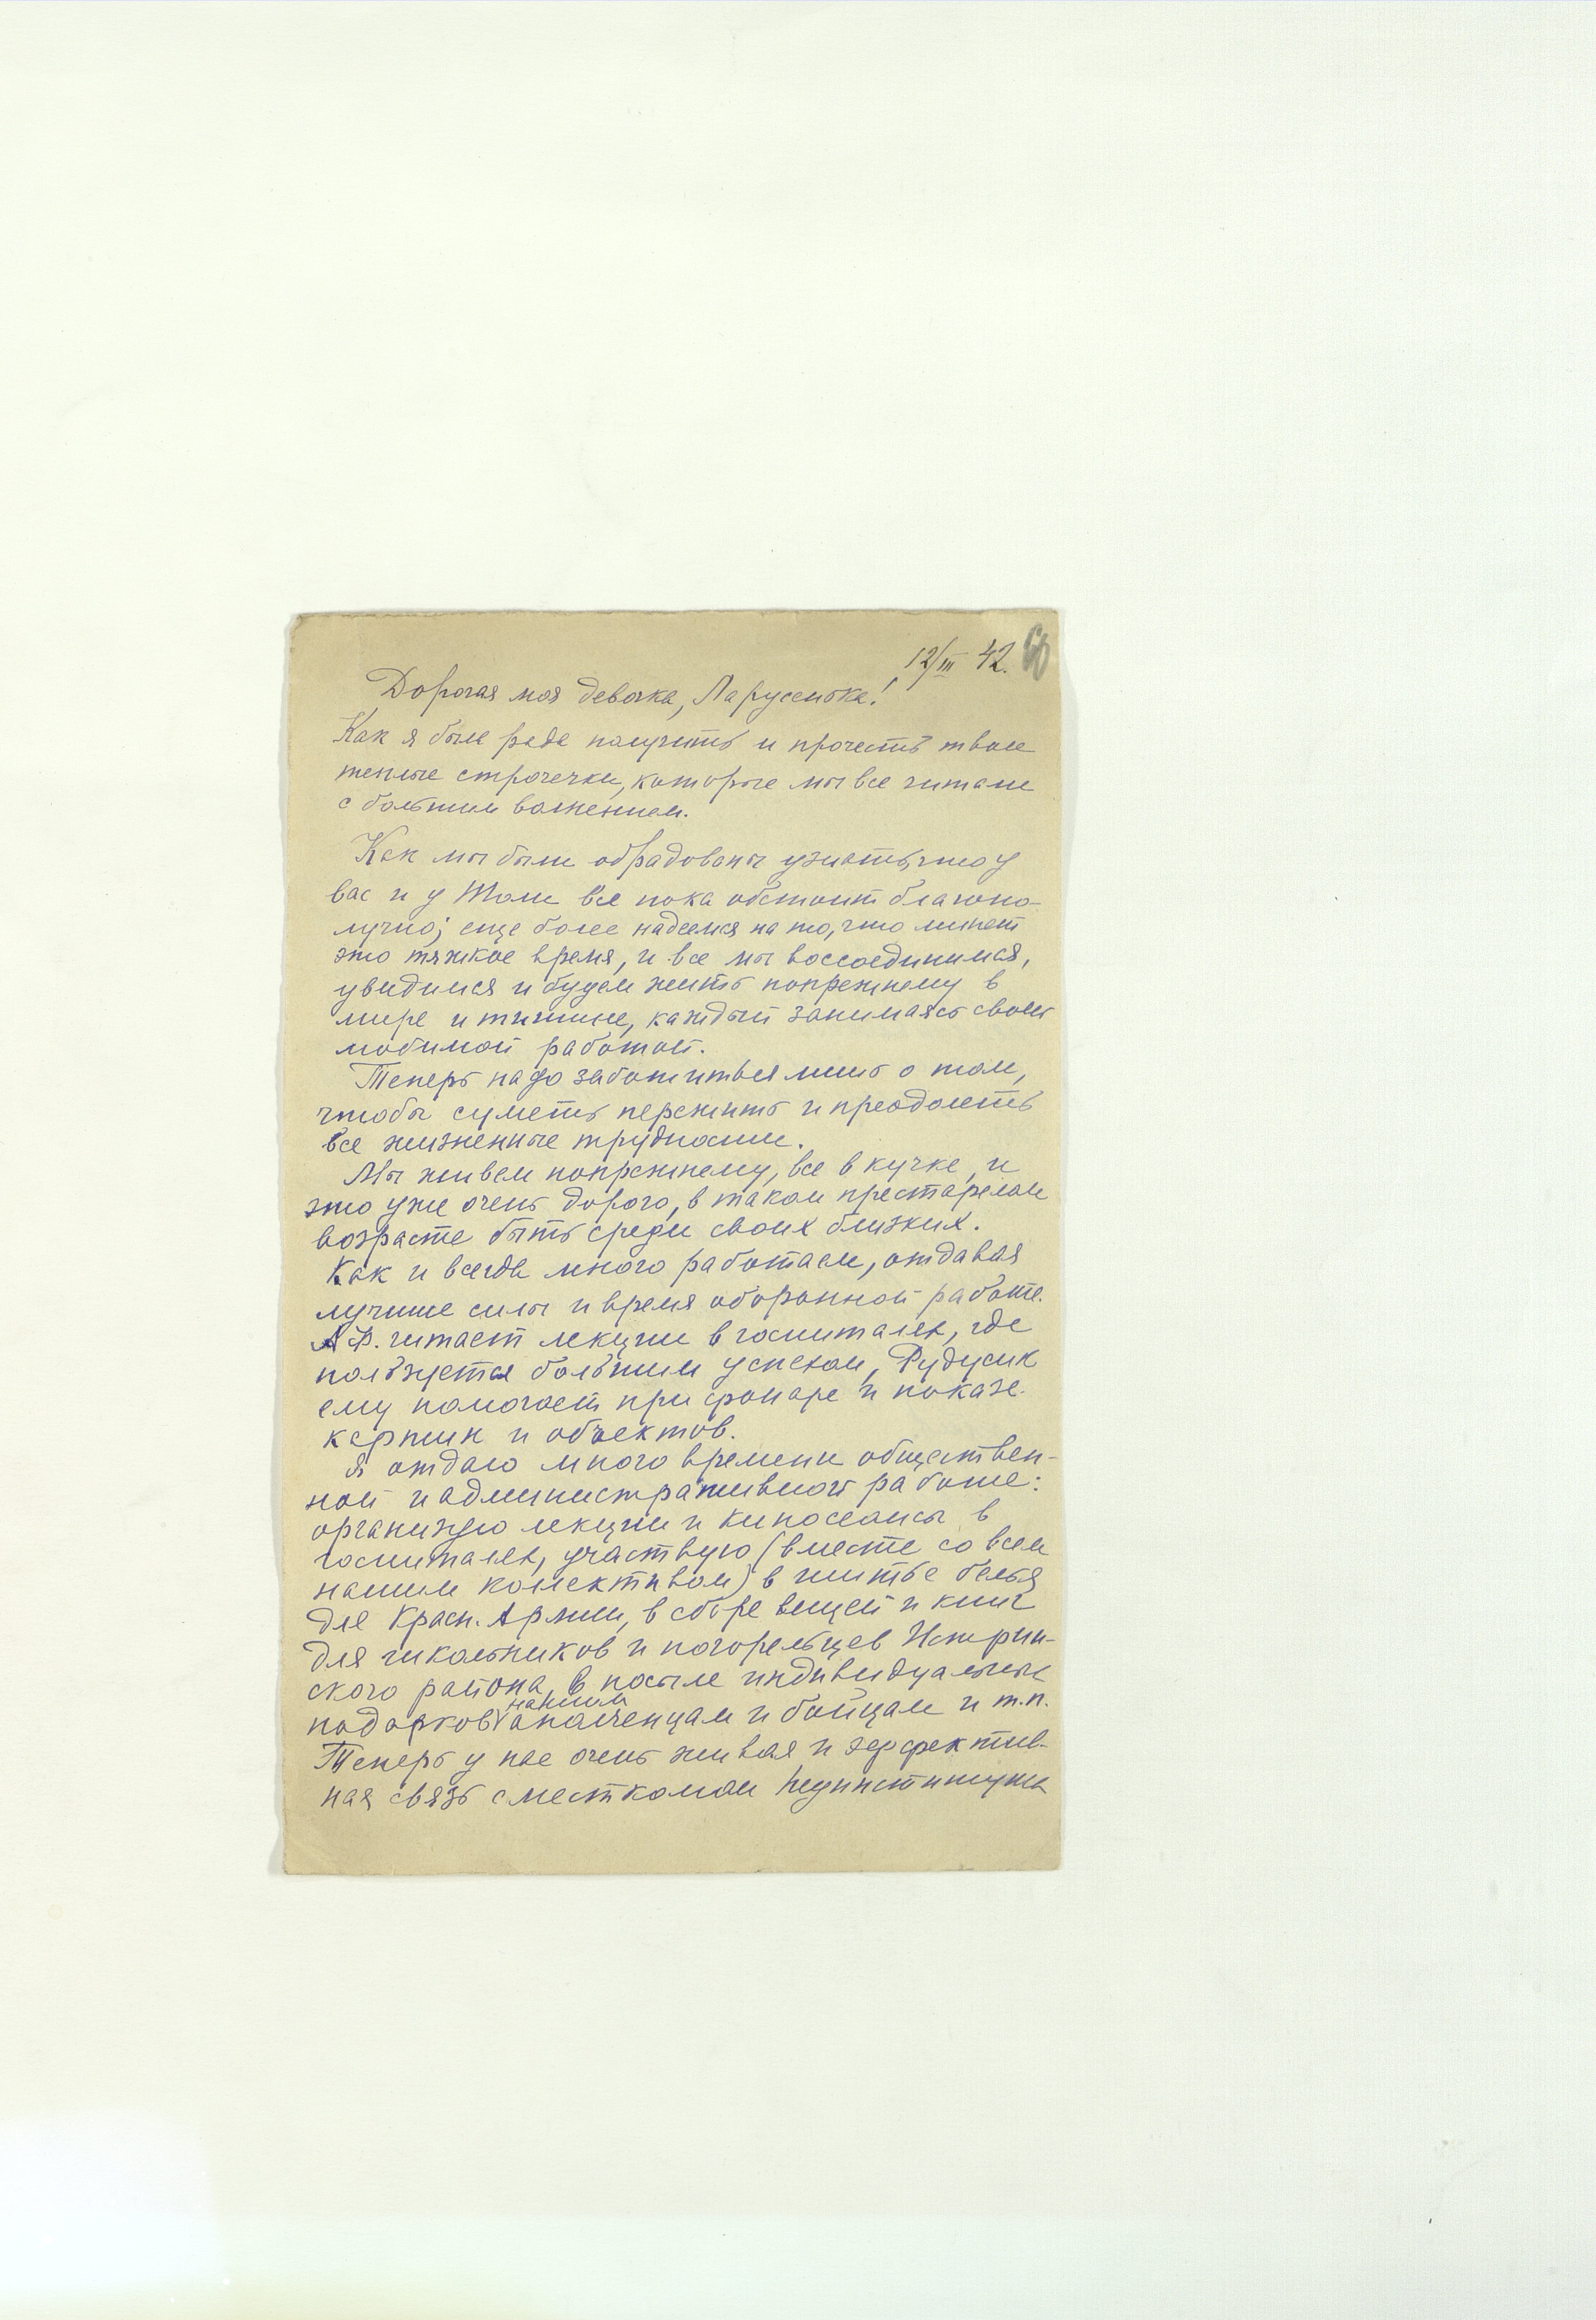 12/III 42. 60
Дорогая моя девочка, Ларусенька!
Как я была рада получить и прочесть твои
теплые строчечки, которые мы все читали
с большим волнением.
Как мы были обрадованы узнать, что у
вас и у Толи все пока обстоит благопо-
лучно; еще более надеемся на то, что минет
это тяжкое время, и все мы воссоединимся,
увидимся и будем жить попрежнему в
мире и тишине, каждый занимаясь своей
любимой работой.
Теперь надо заботиться лишь о том,
чтобы суметь пережить и преодолеть
все жизненные трудности.
Мы живем попрежнему, все в кучке, и
это уже очень дорого, в таком престарелом
возрасте быть среди своих близких.
Как и всегда много работаем, отдавая
лучшие силы и время оборонной работе.
А.Ф. читает лекции в госпиталях, где
пользуется большим успехом, Рудусик
ему помогает при фонаре и показе
картин и объектов.
Я отдаю много времени обществен-
ной и административной работе:
организую лекции и киносеансы в
госпиталях, участвую (вместе со всем
нашим колективом) в шитье белья
для Красн. Армии, в сборе вещей и книг
для школьников и погорельцев Истрин-
ского района, в посыле индивидуальных
подарков нашим ополченцам и бойцам и т.п.
Теперь у нас очень живая и эффектив-
ная связь с месткомом Пединститута